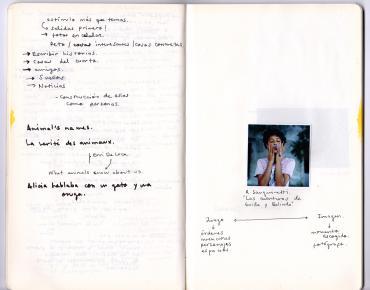 estímulo más que temas.
salidas primero!
fotos en celular.
Reto / cosas interesantes / cosas concretas
→ Escribir historias.
→ Cosas del cuarto.
→ amigos.
→ Sueños
→ Noticias
- Construcción de ellos
como personas.
Animal's names.
La verité des animaux.
What animals know about us.
Alicia hablaba con un gato y una
oruga.
R. Sanguinetti.
"Las aventuras de
Guille y Belinda"
Juego
órdenes
personajes
espacios
Imagen.
momento
escogido.
fotógrafo.